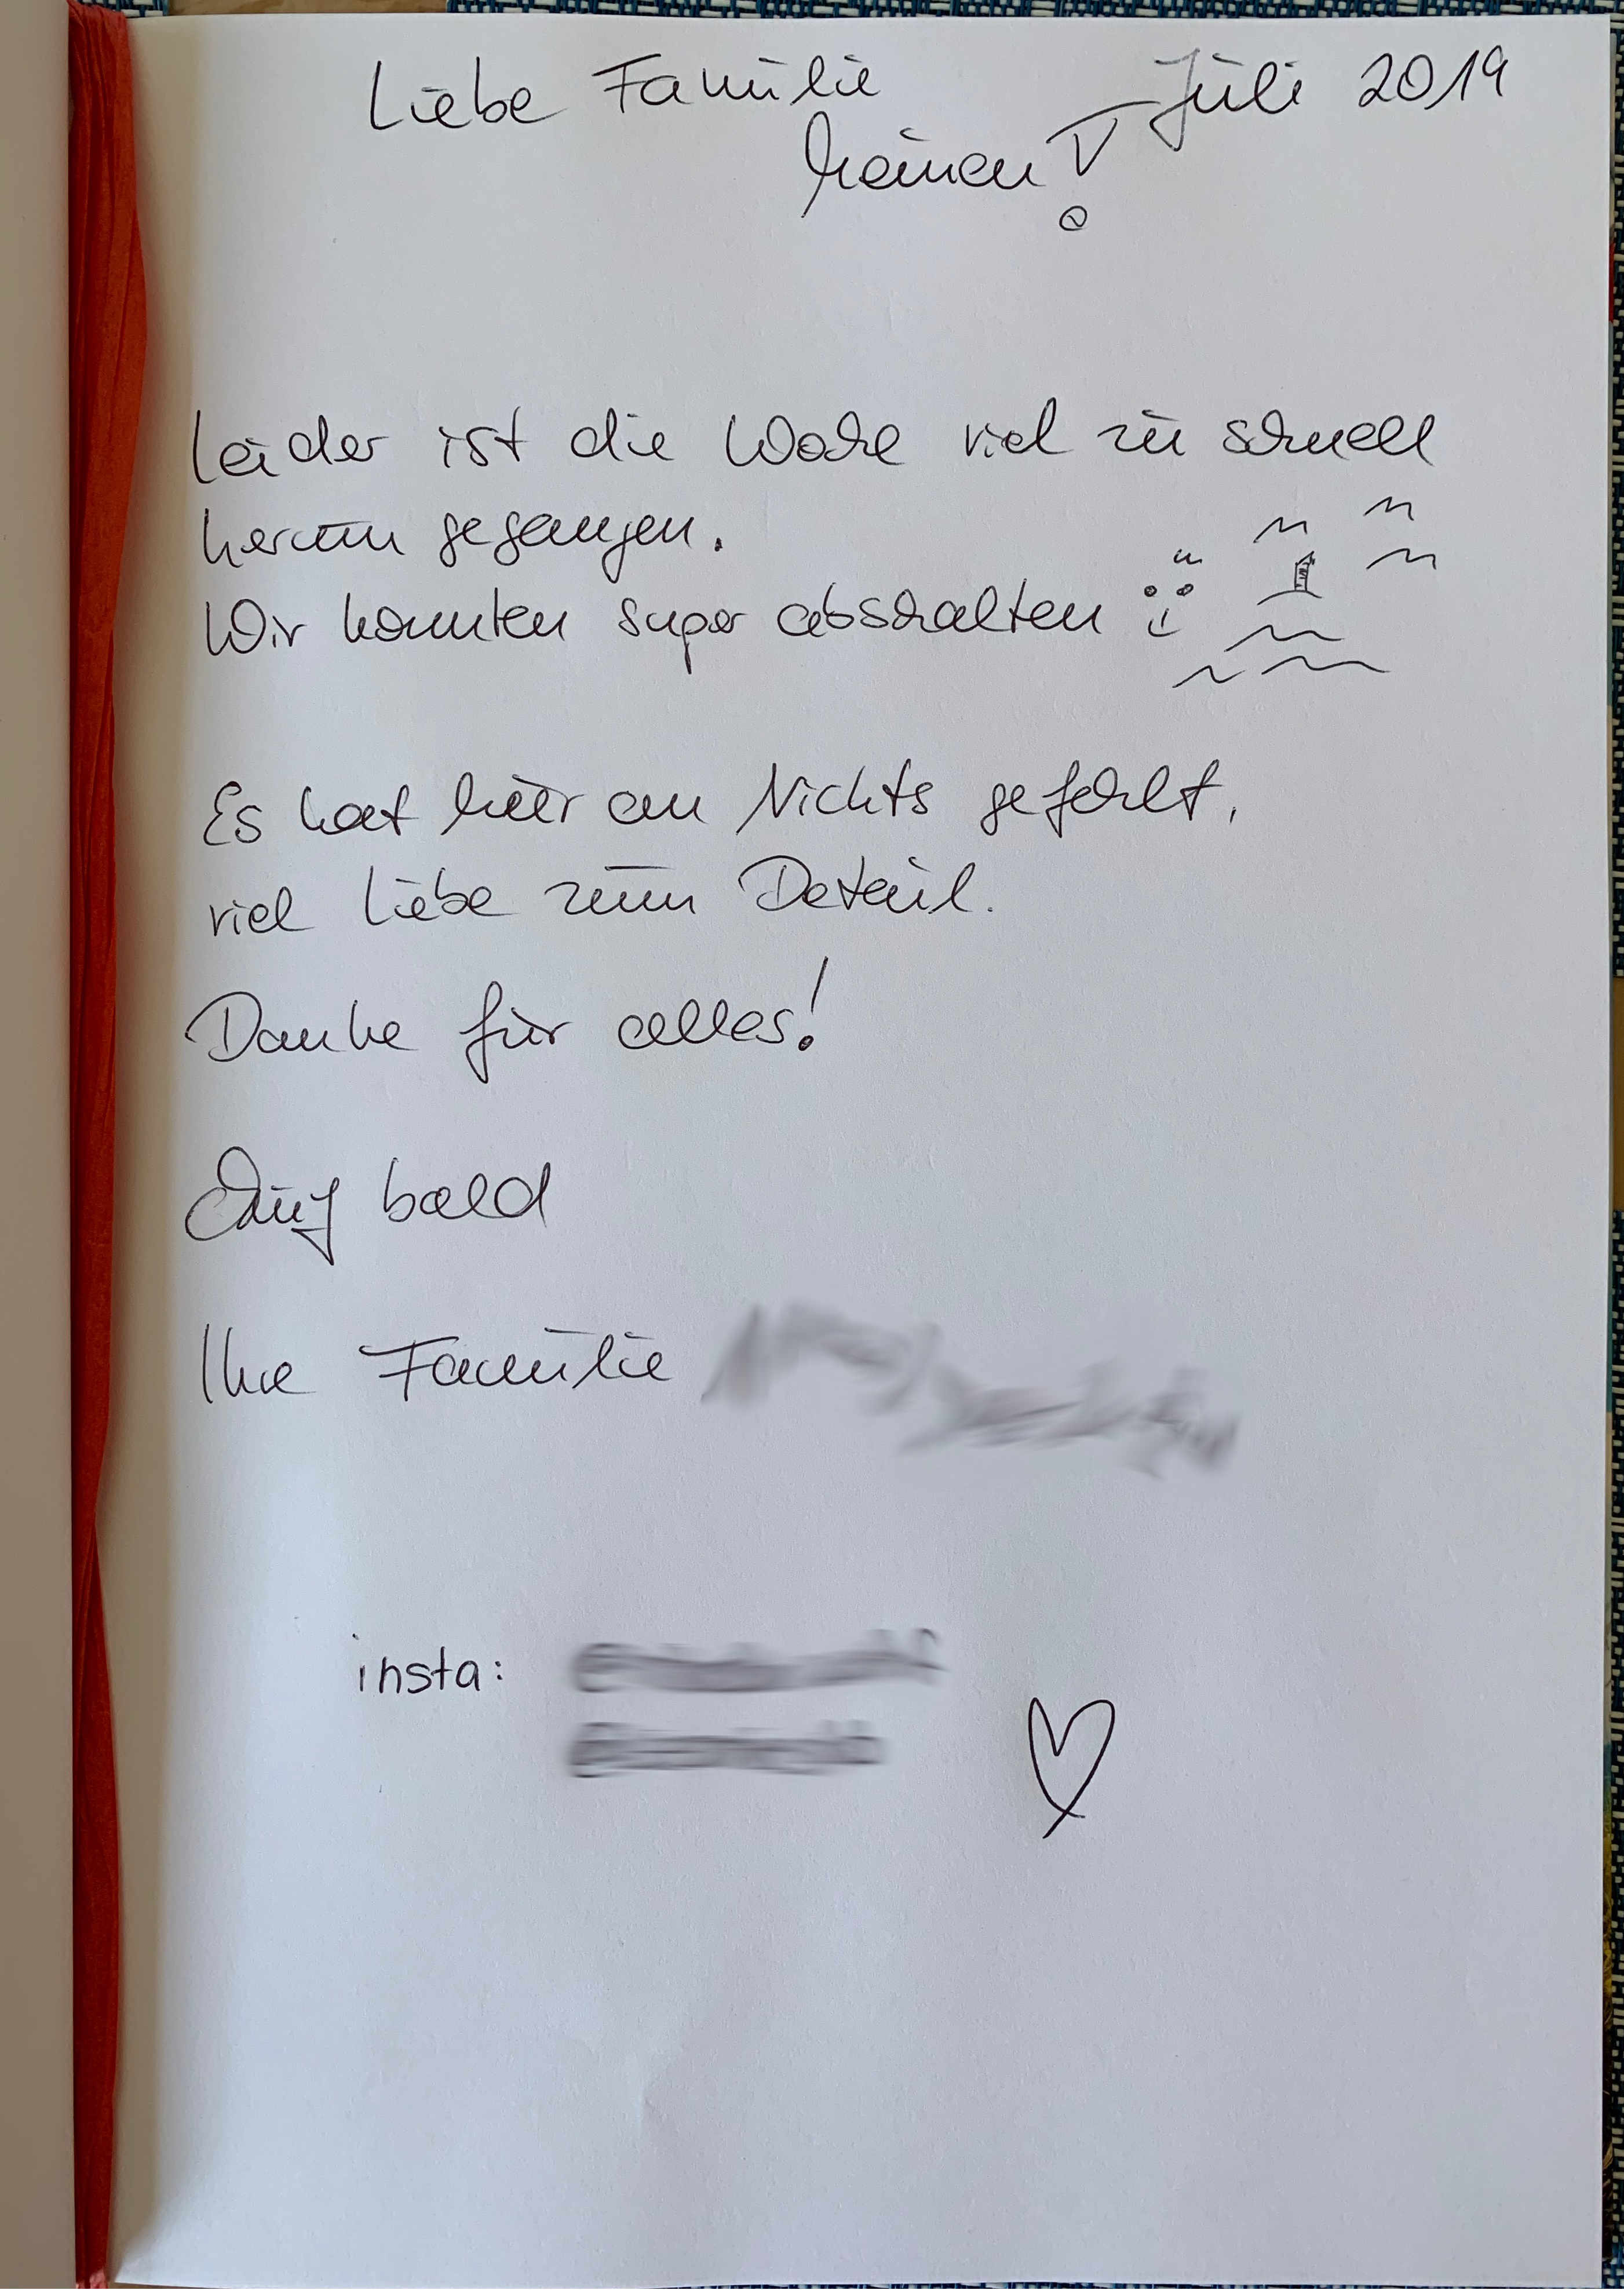 Liebe Familie Juli 2019
Heinen!
Leider ist die Woche viel zu schnell
herum gegangen.
Wir konnten super abschalten
Es hat hier an Nichts gefehlt,
viel Liebe zum Detail.
Danke für alles!
Auf bald
Ihre Familie
insta: